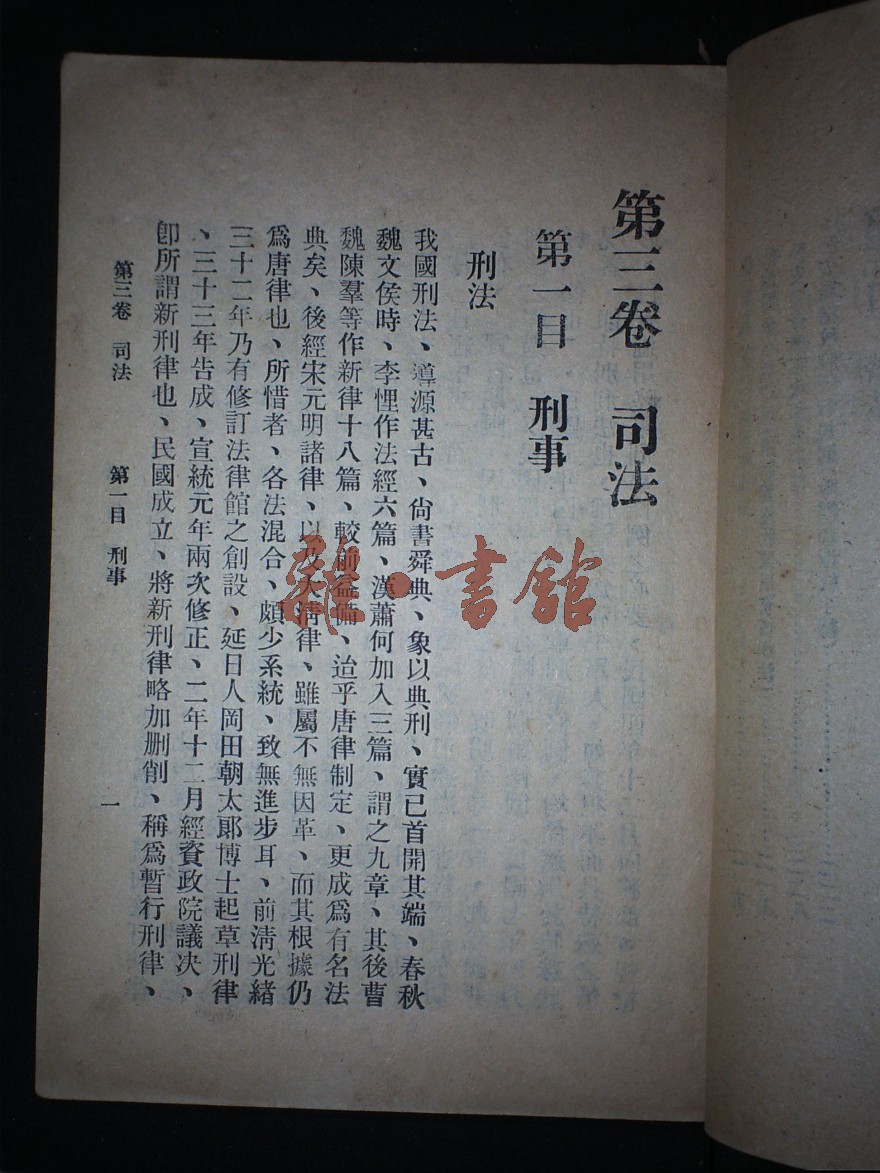 第三卷 司法
第一目 刑事
刑法
我國刑法、導源甚古、尙書舜典、象以典刑、實已首開其端、春秋
魏文侯時、李悝作法經六篇、漢蕭何加入三篇、謂之九章、其後曹
魏陳羣等作新律十八篇、較前益備、迨乎唐律制定、更成爲有名法
典矣、後經宋元明諸律、以及大淸律、雖屬不無因革、而其根據仍
爲唐律也、所惜者、各法混合、頗少系統、致無進步耳、前淸光緒
三十二年乃有修訂法律館之創設、延日人岡田朝太郞博士起草刑律
、三十三年告成、宣統元年兩次修正、二年十二月經資政院議決、
卽所謂新刑律也、民國成立、將新刑律略加删削、稱爲暫行刑律、
第三卷 司法 第一目 刑事 一
雜·書館